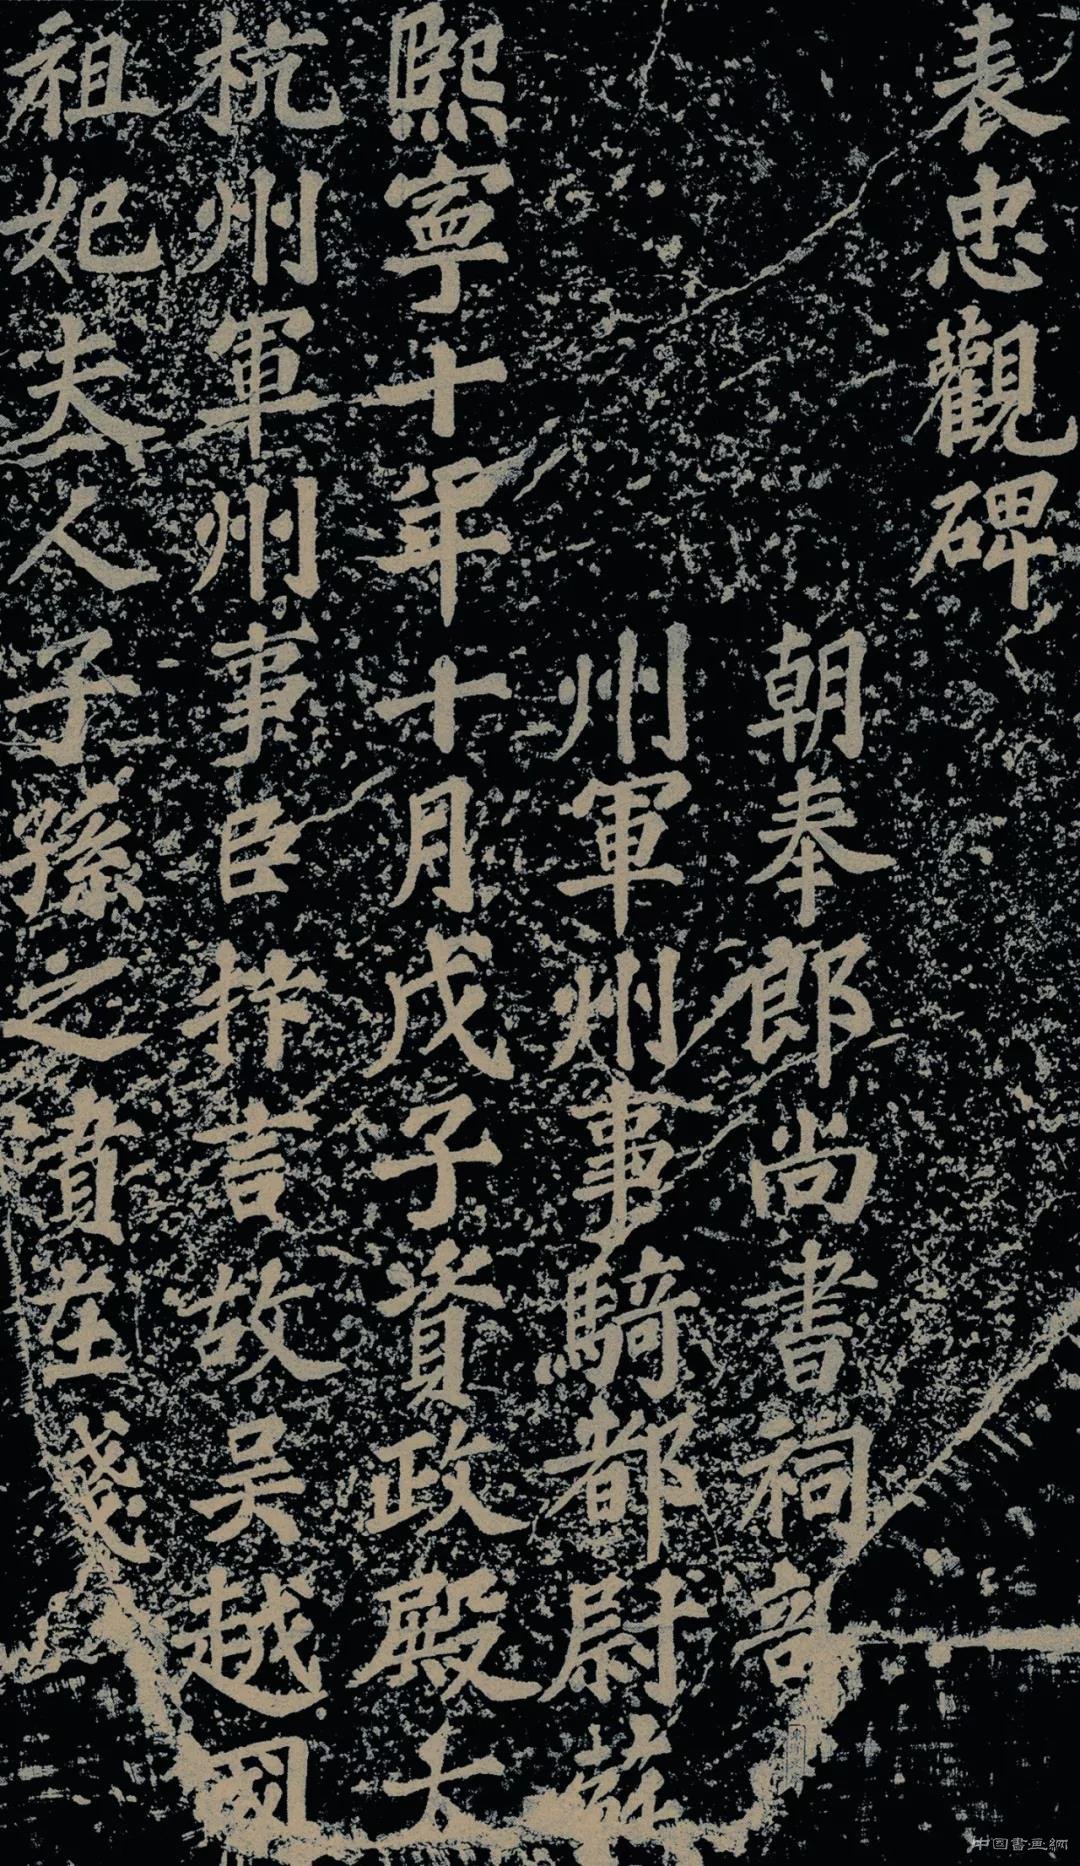 表忠觀碑
朝奉郎尚書祠部
州軍州事騎都尉蘇
熙寧十年十月戊子資政殿大
杭州軍州事臣抃言故吳越國
祖妃夫人子孫之墳在錢
中国書画網